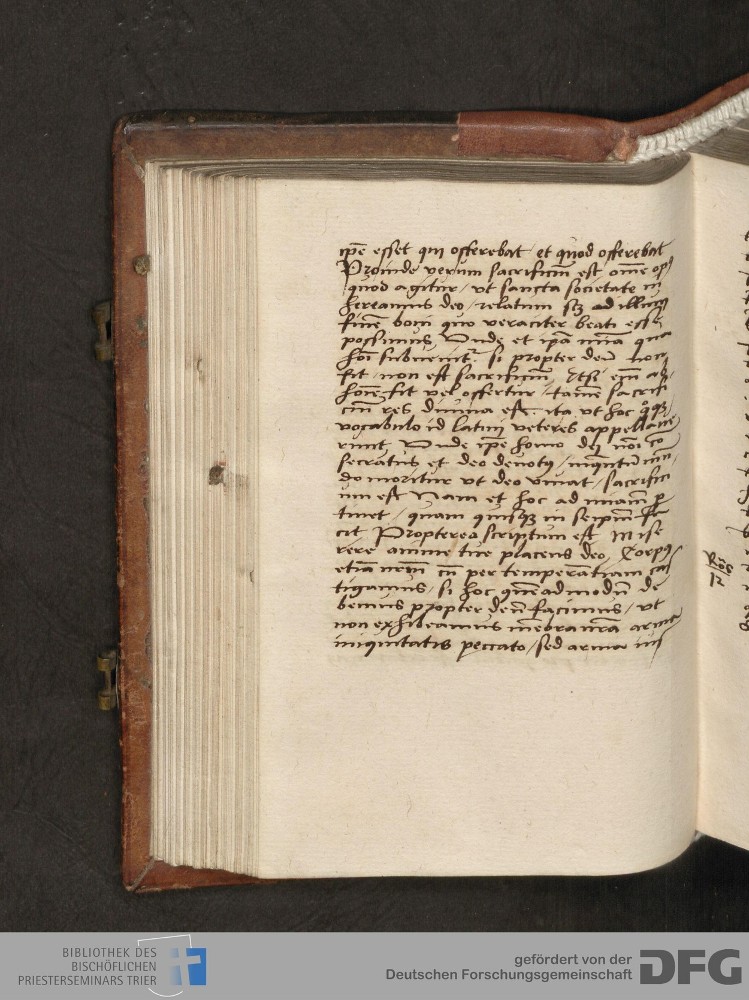 ip̄e esset qui offerebat et quod offerebat
Proinde verum sacrificiū est om̄e op⁹
quod agitur / vt sancta societate in
hereamus deo / relatum scꝫ ad illum
finē boni quo veraciter beati esse
possimus, Vnde et ip̄a mīa qua
hoī subuenit̄ si propter deū non
fit / non est sacrificiū, Etsi em̄ ab
hoīe fit vel offertur / tamē sacrifi
ciū res diuina est ita vt hoc qͦꝫ
vocabulo id latini veteres appellaue
runt Vnde ip̄e homo dei noī co
secratus et deo deuotꝰ / inqͣntū mū
do moritur vt deo viuat / sacrifici
um est Nam et hoc ad miām ꝑ
tinet / quam quisqꝫ in seip̄m fa
cit Propterea scriptum est Mise
rere anime tue placens deo, Corpꝰ
etiā nr̄m cū per temperātiam cas
tigamus / si hoc quēadmodū de
bemus propter deū facimus / vt
non exhibeamus mēbra nr̄a arma
iniquitatis peccato / sed arma ius
Ro
12
BIBLIOTHEK DES
BISCHÖFLICHEN
PRIESTERSEMINARS TRIER
gefördert von der
Deutschen Forschungsgemeinschaft
DFG